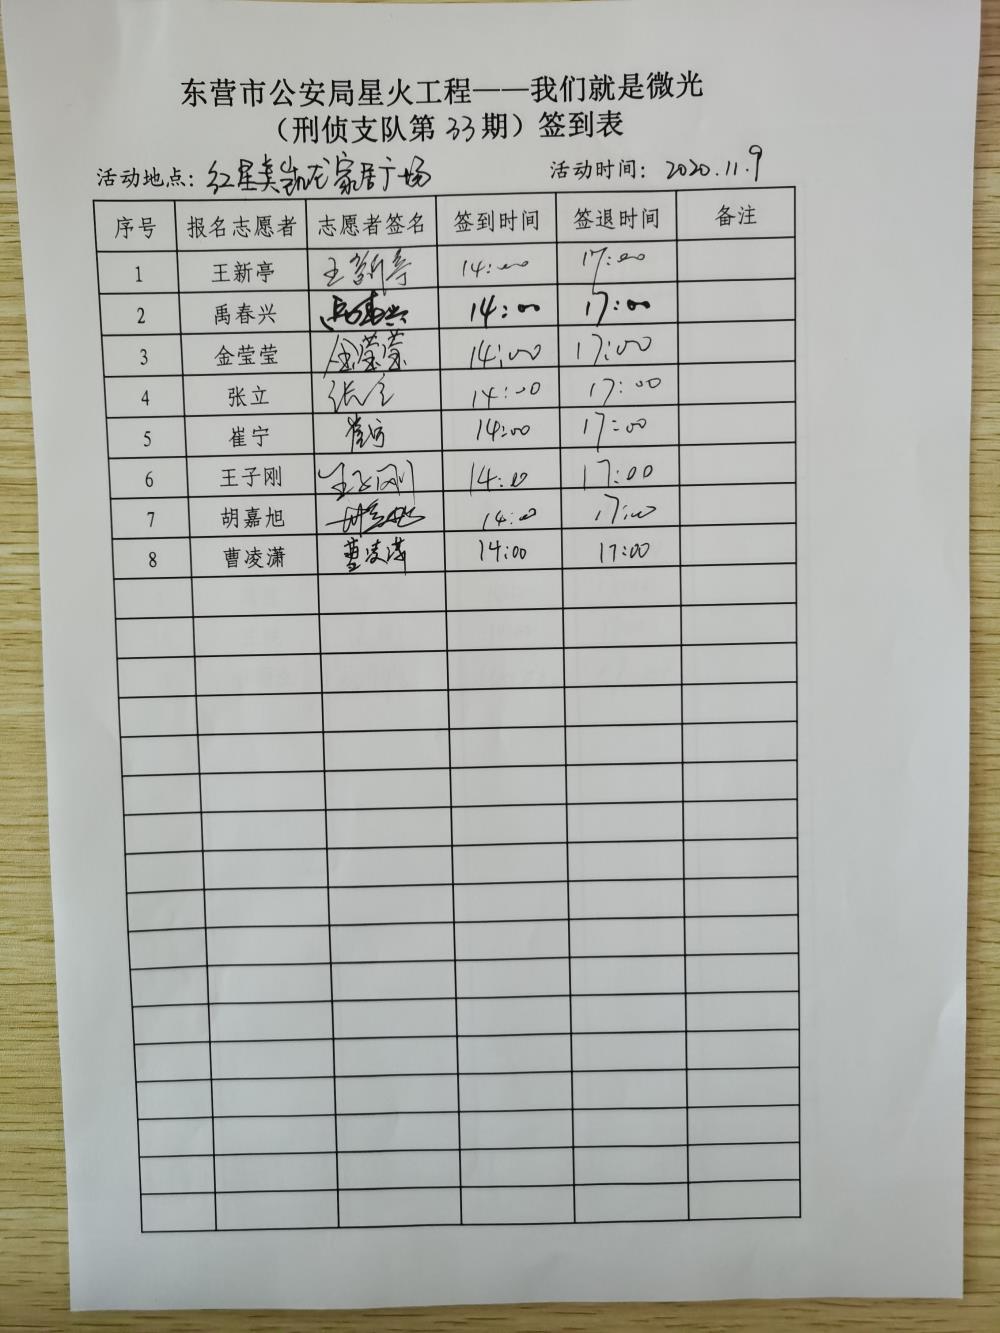 东营市公安局星火工程——我们就是微光
（刑侦支队第33期）签到表
活动地点：红星美凯龙家居广场 活动时间：2020.11.9
序号 报名志愿者 志愿者签名 签到时间 签退时间 备注
1 王新亭 王新亭 14:00 17:00
2 禹春兴 禹春兴 14:00 17:00
3 金莹莹 金莹莹 14:00 17:00
4 张立 张立 14:00 17:00
5 崔宁 崔宁 14:00 17:00
6 王子刚 王子刚 14:00 17:00
7 胡嘉旭 胡嘉旭 14:00 17:00
8 曹凌潇 曹凌潇 14:00 17:00